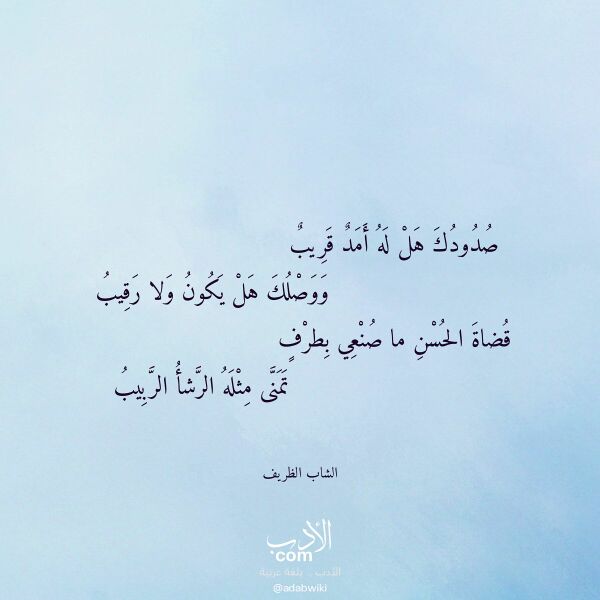 صُدُودُكَ هَلْ لَهُ أَمَدٌ قَرِيبٌ
وَوَصْلُكَ هَلْ يَكُونُ وَلا رَقِيبُ
قُضاةَ الحُسْنِ ما صُنْعِي بِطرْفٍ
تَمَنَّى مِثْلَهُ الرَّشأُ الرَّبِيبُ
الشاب الظريف
الأدب
com
الأدب .. بلغة عربية
@adabwiki